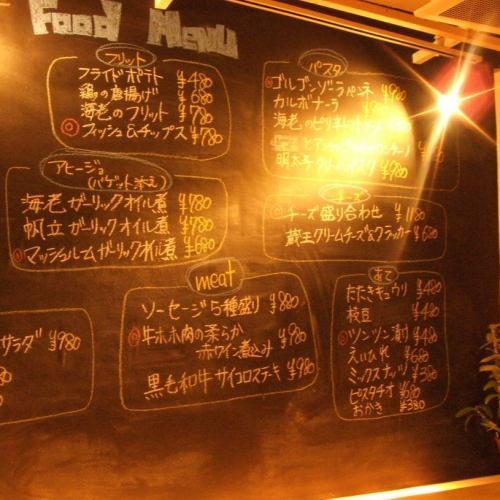 Food Menu
フリット
フライドポテト ¥480
鶏の唐揚げ ¥680
海老のフリット ¥780
◎フィッシュ&チップス ¥780
アヒージョ
(バゲット添え)
海老ガーリックオイル煮 ¥780
帆立ガーリックオイル煮 ¥780
◎マッシュルームガーリックオイル煮 ¥680
meat
ソーセージ5種盛り ¥880
◎牛ホホ肉の柔らか
赤ワイン煮込み ¥980
黒毛和牛サイコロステーキ ¥980
サラダ ¥980
パスタ
◎ゴルゴンゾーラペンネ ¥980
カルボナーラ
海老の
明太子クリームパスタ ¥980
チーズ
◎チーズ盛り合わせ ¥1180
蔵王クリームチーズ&クラッカー ¥680
あて
たたきキュウリ ¥480
枝豆 ¥480
◎ツンツン漬け ¥480
えいひれ ¥680
ミックスナッツ ¥380
ピスタチオ ¥680
おかき ¥380